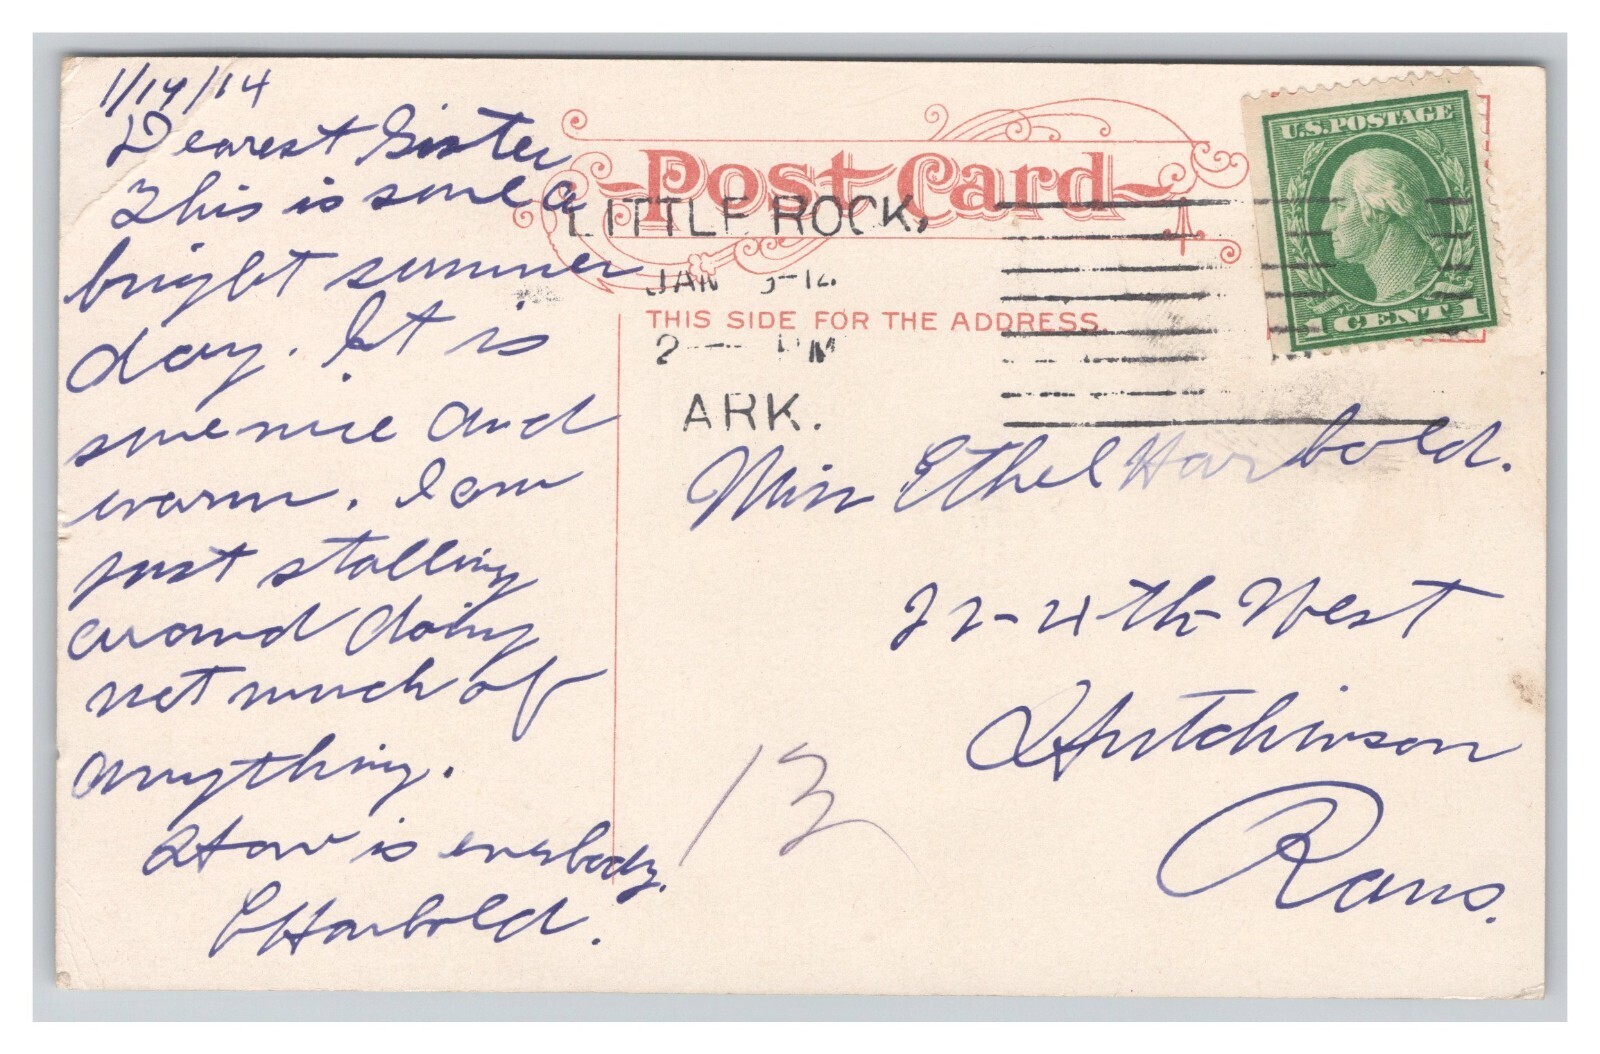 1/14/14
Dearest Sister
This is sure a
bright summer
day. It is
sure nice and
warm. I am
just stalling
around doing
not much of
anything.
How is everbody.
Harbold.
Post Card
LITTLE ROCK,
JAN
THIS SIDE FOR THE ADDRESS
2 PM
ARK.
U.S. POSTAGE
1 CENT 1
Miss Ethel Harbold.
22-4th-West
Hutchinson
Kans.
13